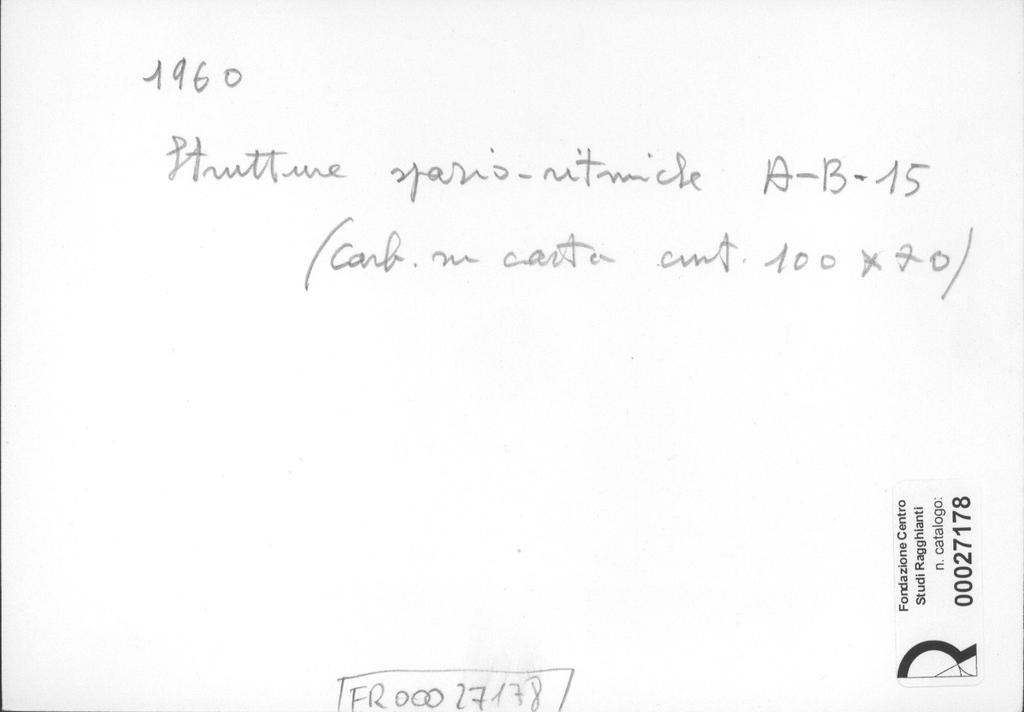 1960
Strutture spazio-ritmiche A-B-15
(Carb. su carta cmt. 100 x 70)
Fondazione Centro
Studi Ragghianti
n. catalogo:
00027178
FR00027178